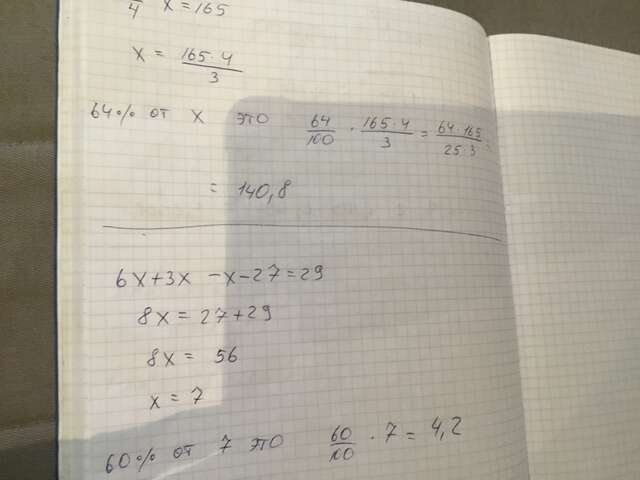 /4 x = 165
x = 165·4/3
64% от x это 64/100 · 165·4/3 = 64·165/25·3 =
= 140,8
6x+3x -x-27=29
8x = 27+29
8x = 56
x = 7
60% от 7 это 60/100 · 7 = 4,2